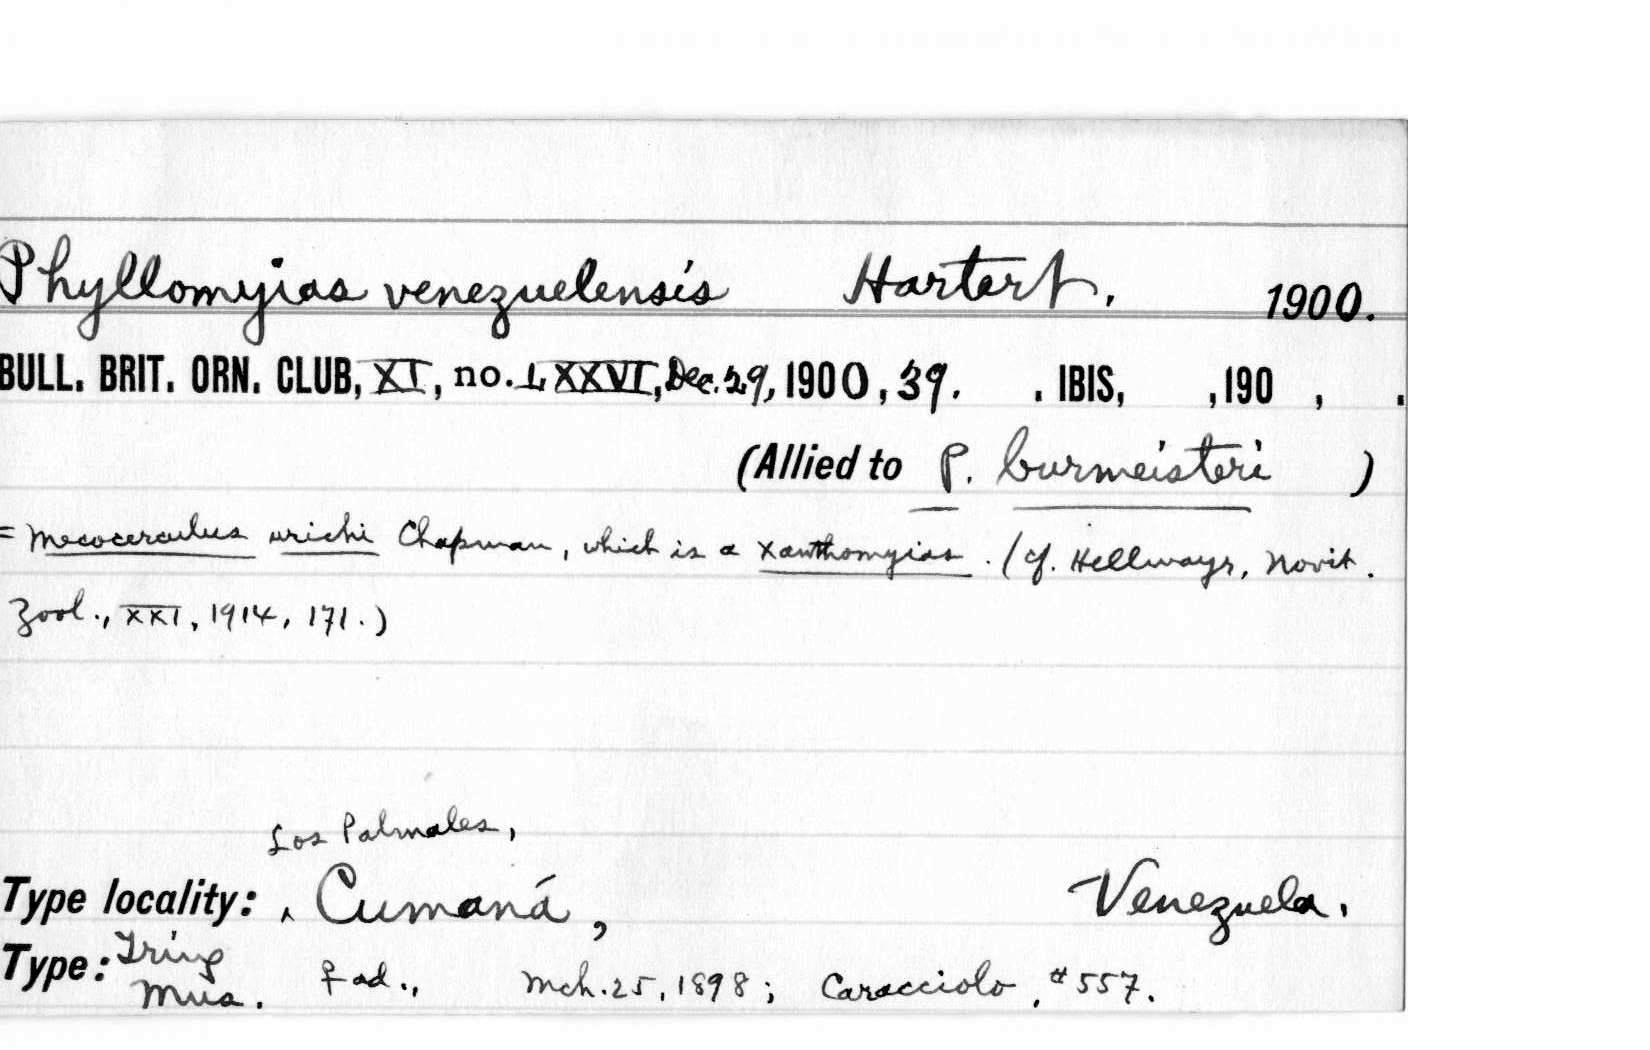 Phyllomyias venezuelensis Hartert. 1900.
BULL. BRIT. ORN. CLUB, XI, no. LXXVI, Dec. 29, 1900, 39. . IBIS, , 190 , .
(Allied to P. burmeisteri )
= Mecocerculus urichi Chapman, which is a Xanthomyias. (Cf. Hellmayr, Novit.
Zool., XXI, 1914, 171.)
Los Palmales,
Type locality: ‸ Cumaná, Venezuela.
Type: Tring
Mus. ♀ ad., Mch. 25, 1898; Caracciolo, #557.